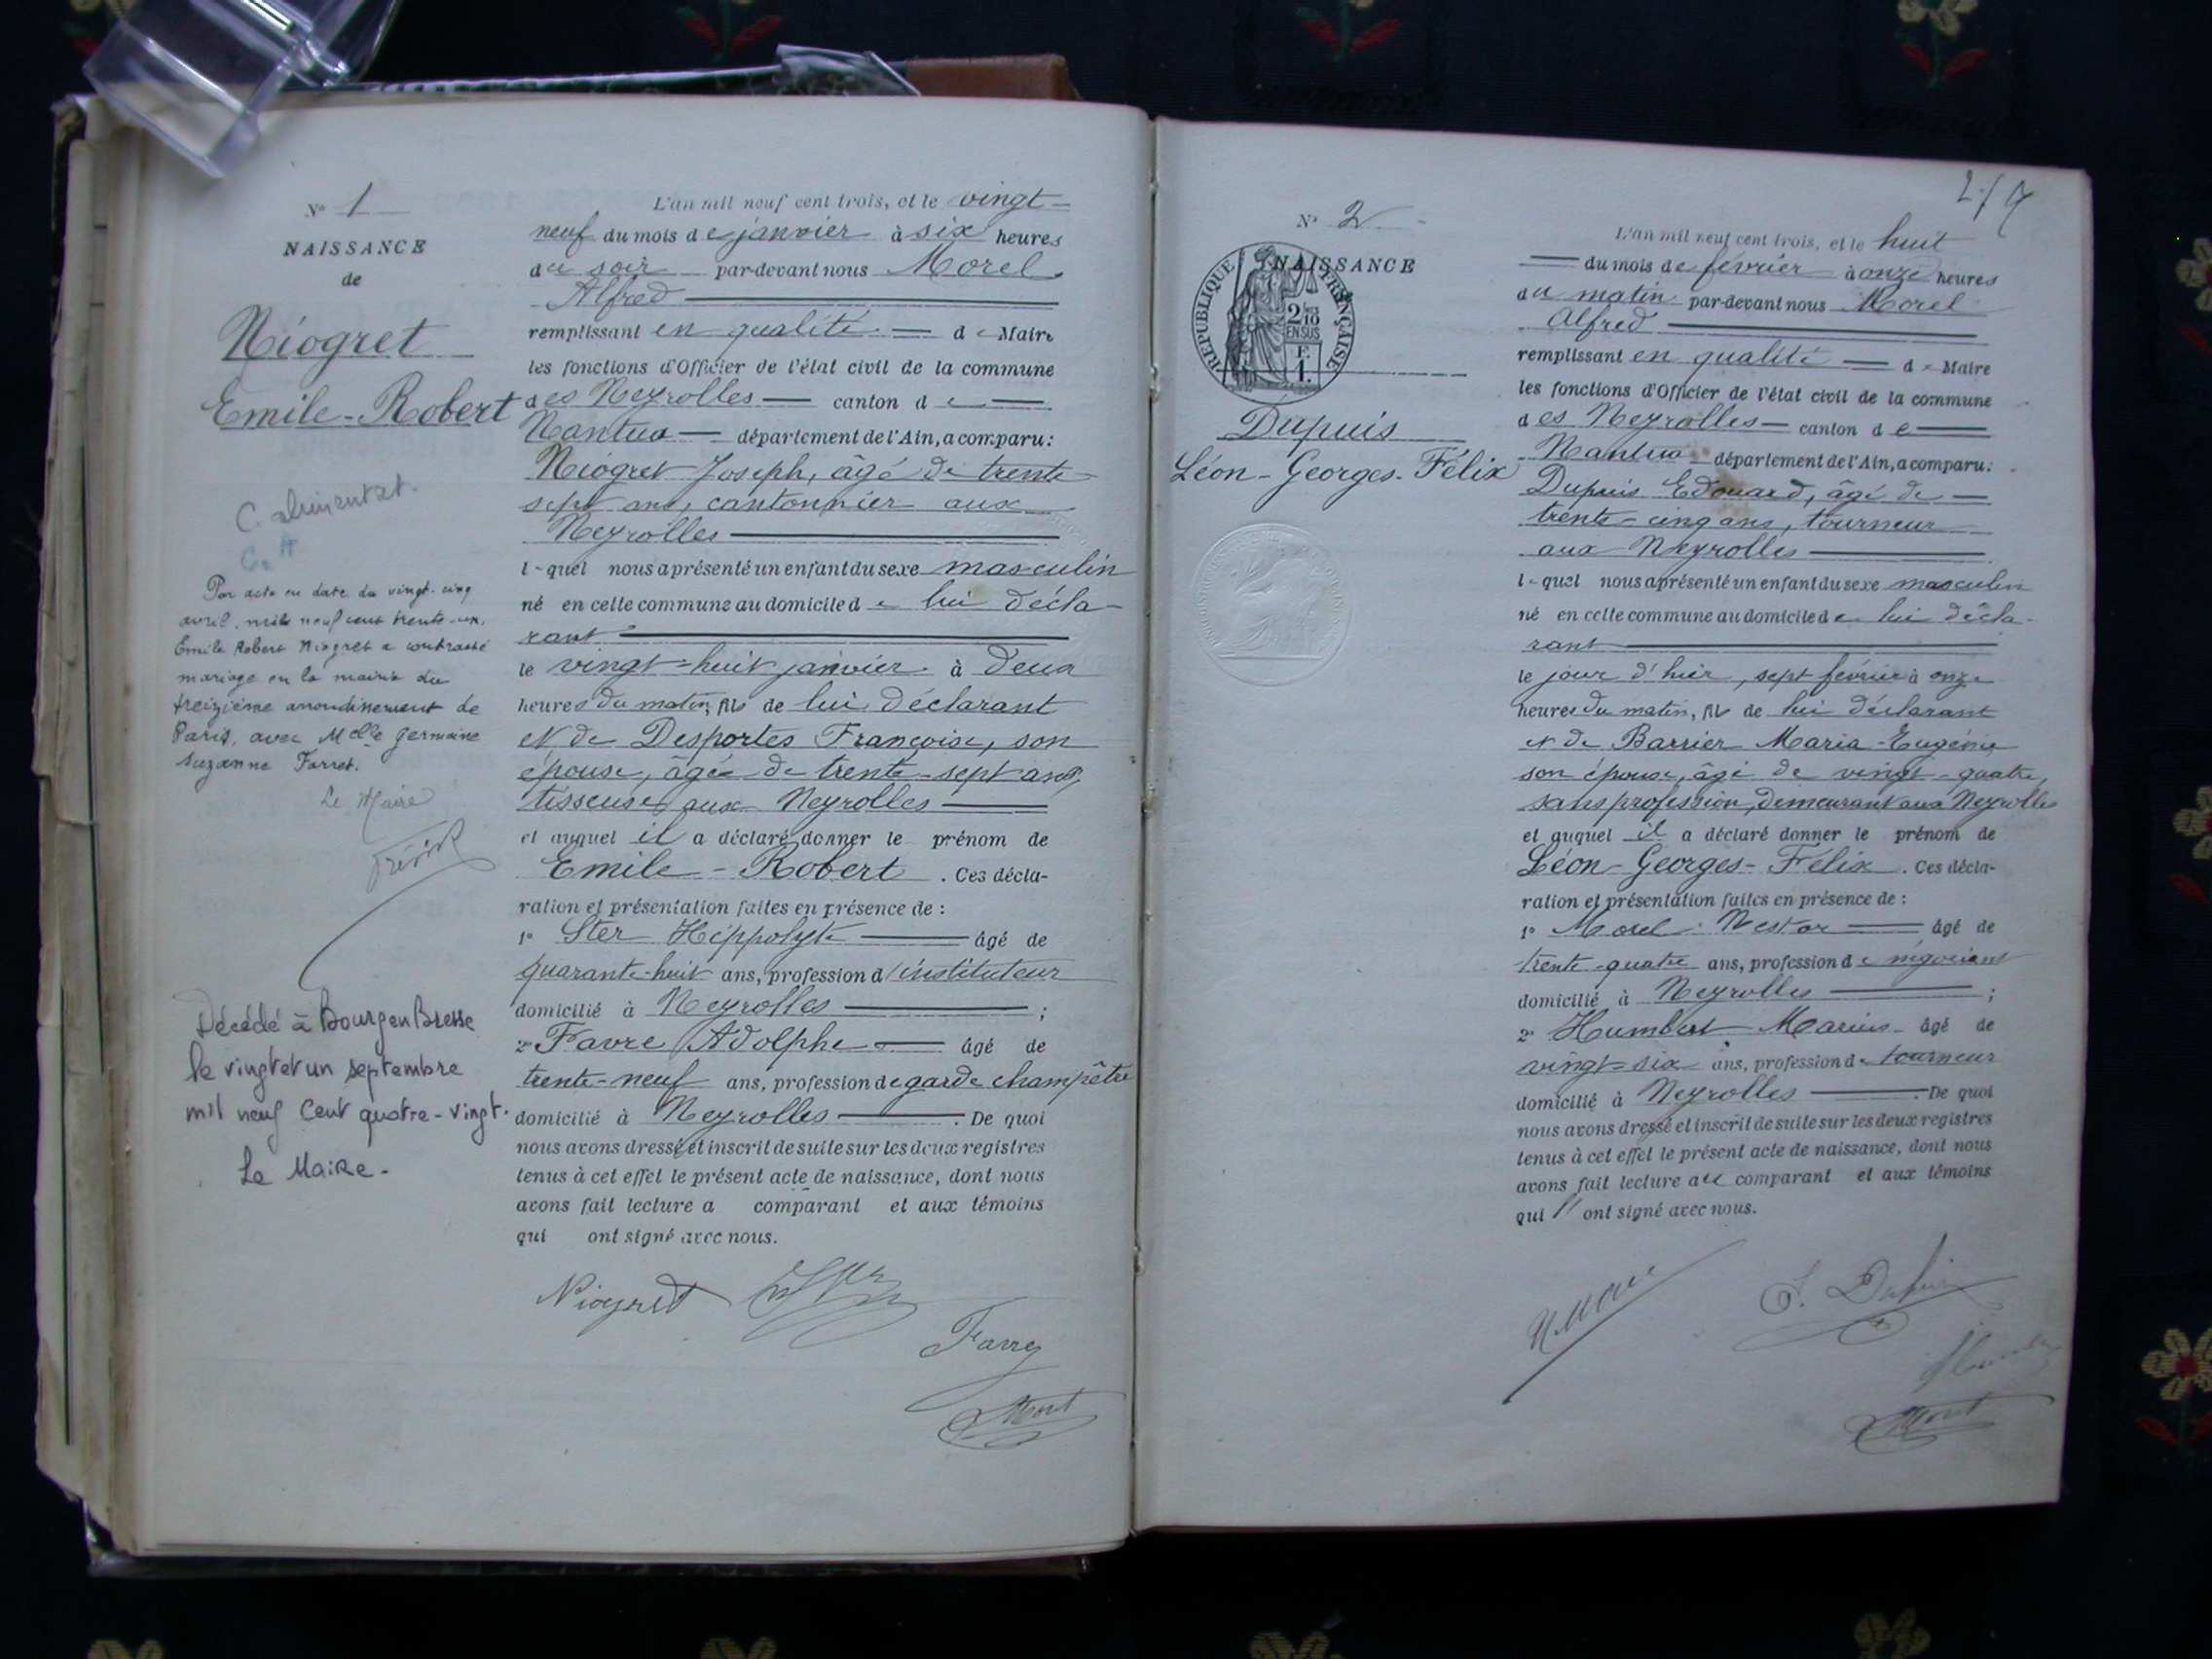 N° 1
NAISSANCE
de
Niogret
Emile-Robert
C. alimentat.
Par acte en date du vingt-cinq
avril, mil neuf cent trente-un,
Emile Robert Niogret a contracté
mariage en la mairie du
treizième arrondissement de
Paris, avec Melle Germaine
Suzanne Farret.
Le Maire
Décédé à Bourg en Bresse
le vingt et un septembre
mil neuf cent quatre-vingt.
Le Maire-
L'an mil neuf cent trois, et le vingt-
neuf du mois de janvier à six heures
du soir par-devant nous Morel
Alfred
remplissant en qualité de Maire
les fonctions d'Officier de l'état civil de la commune
des Neyrolles canton de
Nantua département de l'Ain, a comparu:
Niogret Joseph, âgé de trente
sept ans, cantonnier aux
Neyrolles
lequel nous a présenté un enfant du sexe masculin
né en cette commune au domicile de lui décla-
rant
le vingt-huit janvier à deux
heures du matin, fils de lui déclarant
et de Desportes Françoise, son
épouse, âgée de trente-sept ans,
tisseuse aux Neyrolles
et auquel il a déclaré donner le prénom de
Emile-Robert. Ces décla-
ration et présentation faites en présence de :
1° Ster Hippolyte âgé de
quarante-huit ans, profession d'instituteur
domicilié à Neyrolles ;
2° Favre Adolphe âgé de
trente-neuf ans, profession de garde champêtre
domicilié à Neyrolles. De quoi
nous avons dressé et inscrit de suite sur les deux registres
tenus à cet effet le présent acte de naissance, dont nous
avons fait lecture a comparant et aux témoins
qui ont signé avec nous.
Niogret
Favre
Morel
2/
N° 2
NAISSANCE
REPUBLIQUE FRANÇAISE
2/10
EN SUS
F.
1.
Dupuis
Léon-Georges-Félix
L'an mil neuf cent trois, et le huit
du mois de février à onze heures
du matin par-devant nous Morel
Alfred
remplissant en qualité de Maire
les fonctions d'Officier de l'état civil de la commune
des Neyrolles canton de
Nantua département de l'Ain, a comparu:
Dupuis Edouard, âgé de
trente-cinq ans, tourneur
aux Neyrolles
lequel nous a présenté un enfant du sexe masculin
né en cette commune au domicile de lui décla-
rant
le jour d'hier, sept février à onze
heures du matin, fils de lui déclarant
et de Barrier Maria-Eugénie
son épouse, âgé de vingt-quatre,
sans profession, demeurant aux Neyrolles
et auquel il a déclaré donner le prénom de
Léon-Georges-Félix. Ces décla-
ration et présentation faites en présence de :
1° Morel Nestor âgé de
trente-quatre ans, profession de négociant
domicilié à Neyrolles ;
2° Humbert Marius âgé de
vingt-six ans, profession de tourneur
domicilié à Neyrolles. De quoi
nous avons dressé et inscrit de suite sur les deux registres
tenus à cet effet le présent acte de naissance, dont nous
avons fait lecture au comparant et aux témoins
qui ont signé avec nous.
Dupuis
Morel